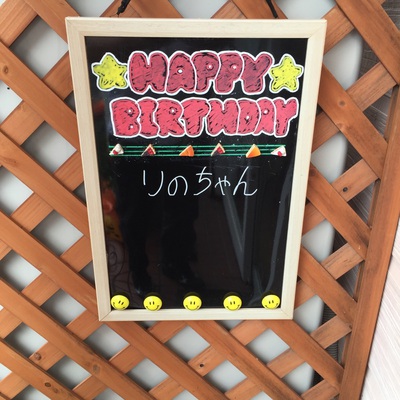 HAPPY
BIRTHDAY
りのちゃん